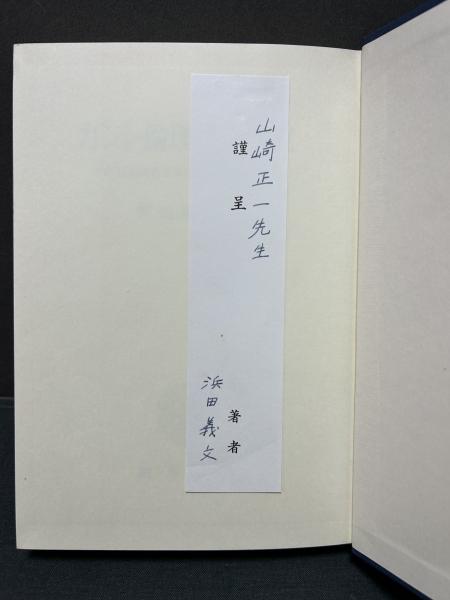 山崎正一先生
謹呈
著者
浜田義文